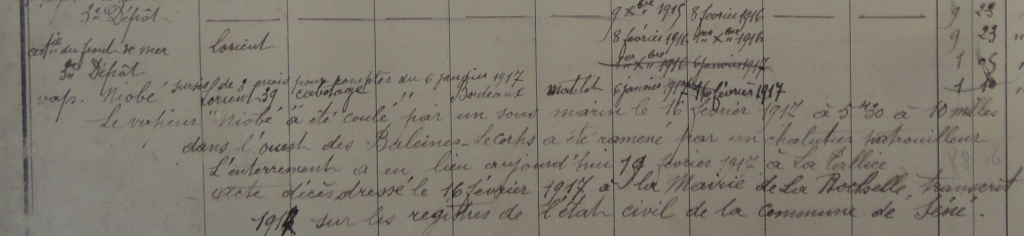 3me Dépôt 9 Xbre 1915 8 février 1916 9 23
artie du front de mer Lorient 8 février 1916 1er Xbre 1916 9 23
3me Dépôt 1er Xbre 1916 6 janvier 1917 1 05
sursis de 3 mois pour compter du 6 janvier 1917
vap. Niobé Lorient 39 cabotage Bordeaux matelot 6 janvier 1917 16 février 1917 1 10
Le vapeur "Niobé" a été coulé par un sous marin le 16 février 1917 à 5h30 à 10 milles
dans l'ouest des Baleines - Le corps a été ramené par un chalutier patrouilleur
L'enterrement a eu lieu aujourd'hui 19 février 1917 à La Pallice
Acte décès dressé le 16 février 1917 à la Mairie de La Rochelle, transcrit
1917 sur les registres de l'état civil de la commune de Séné.